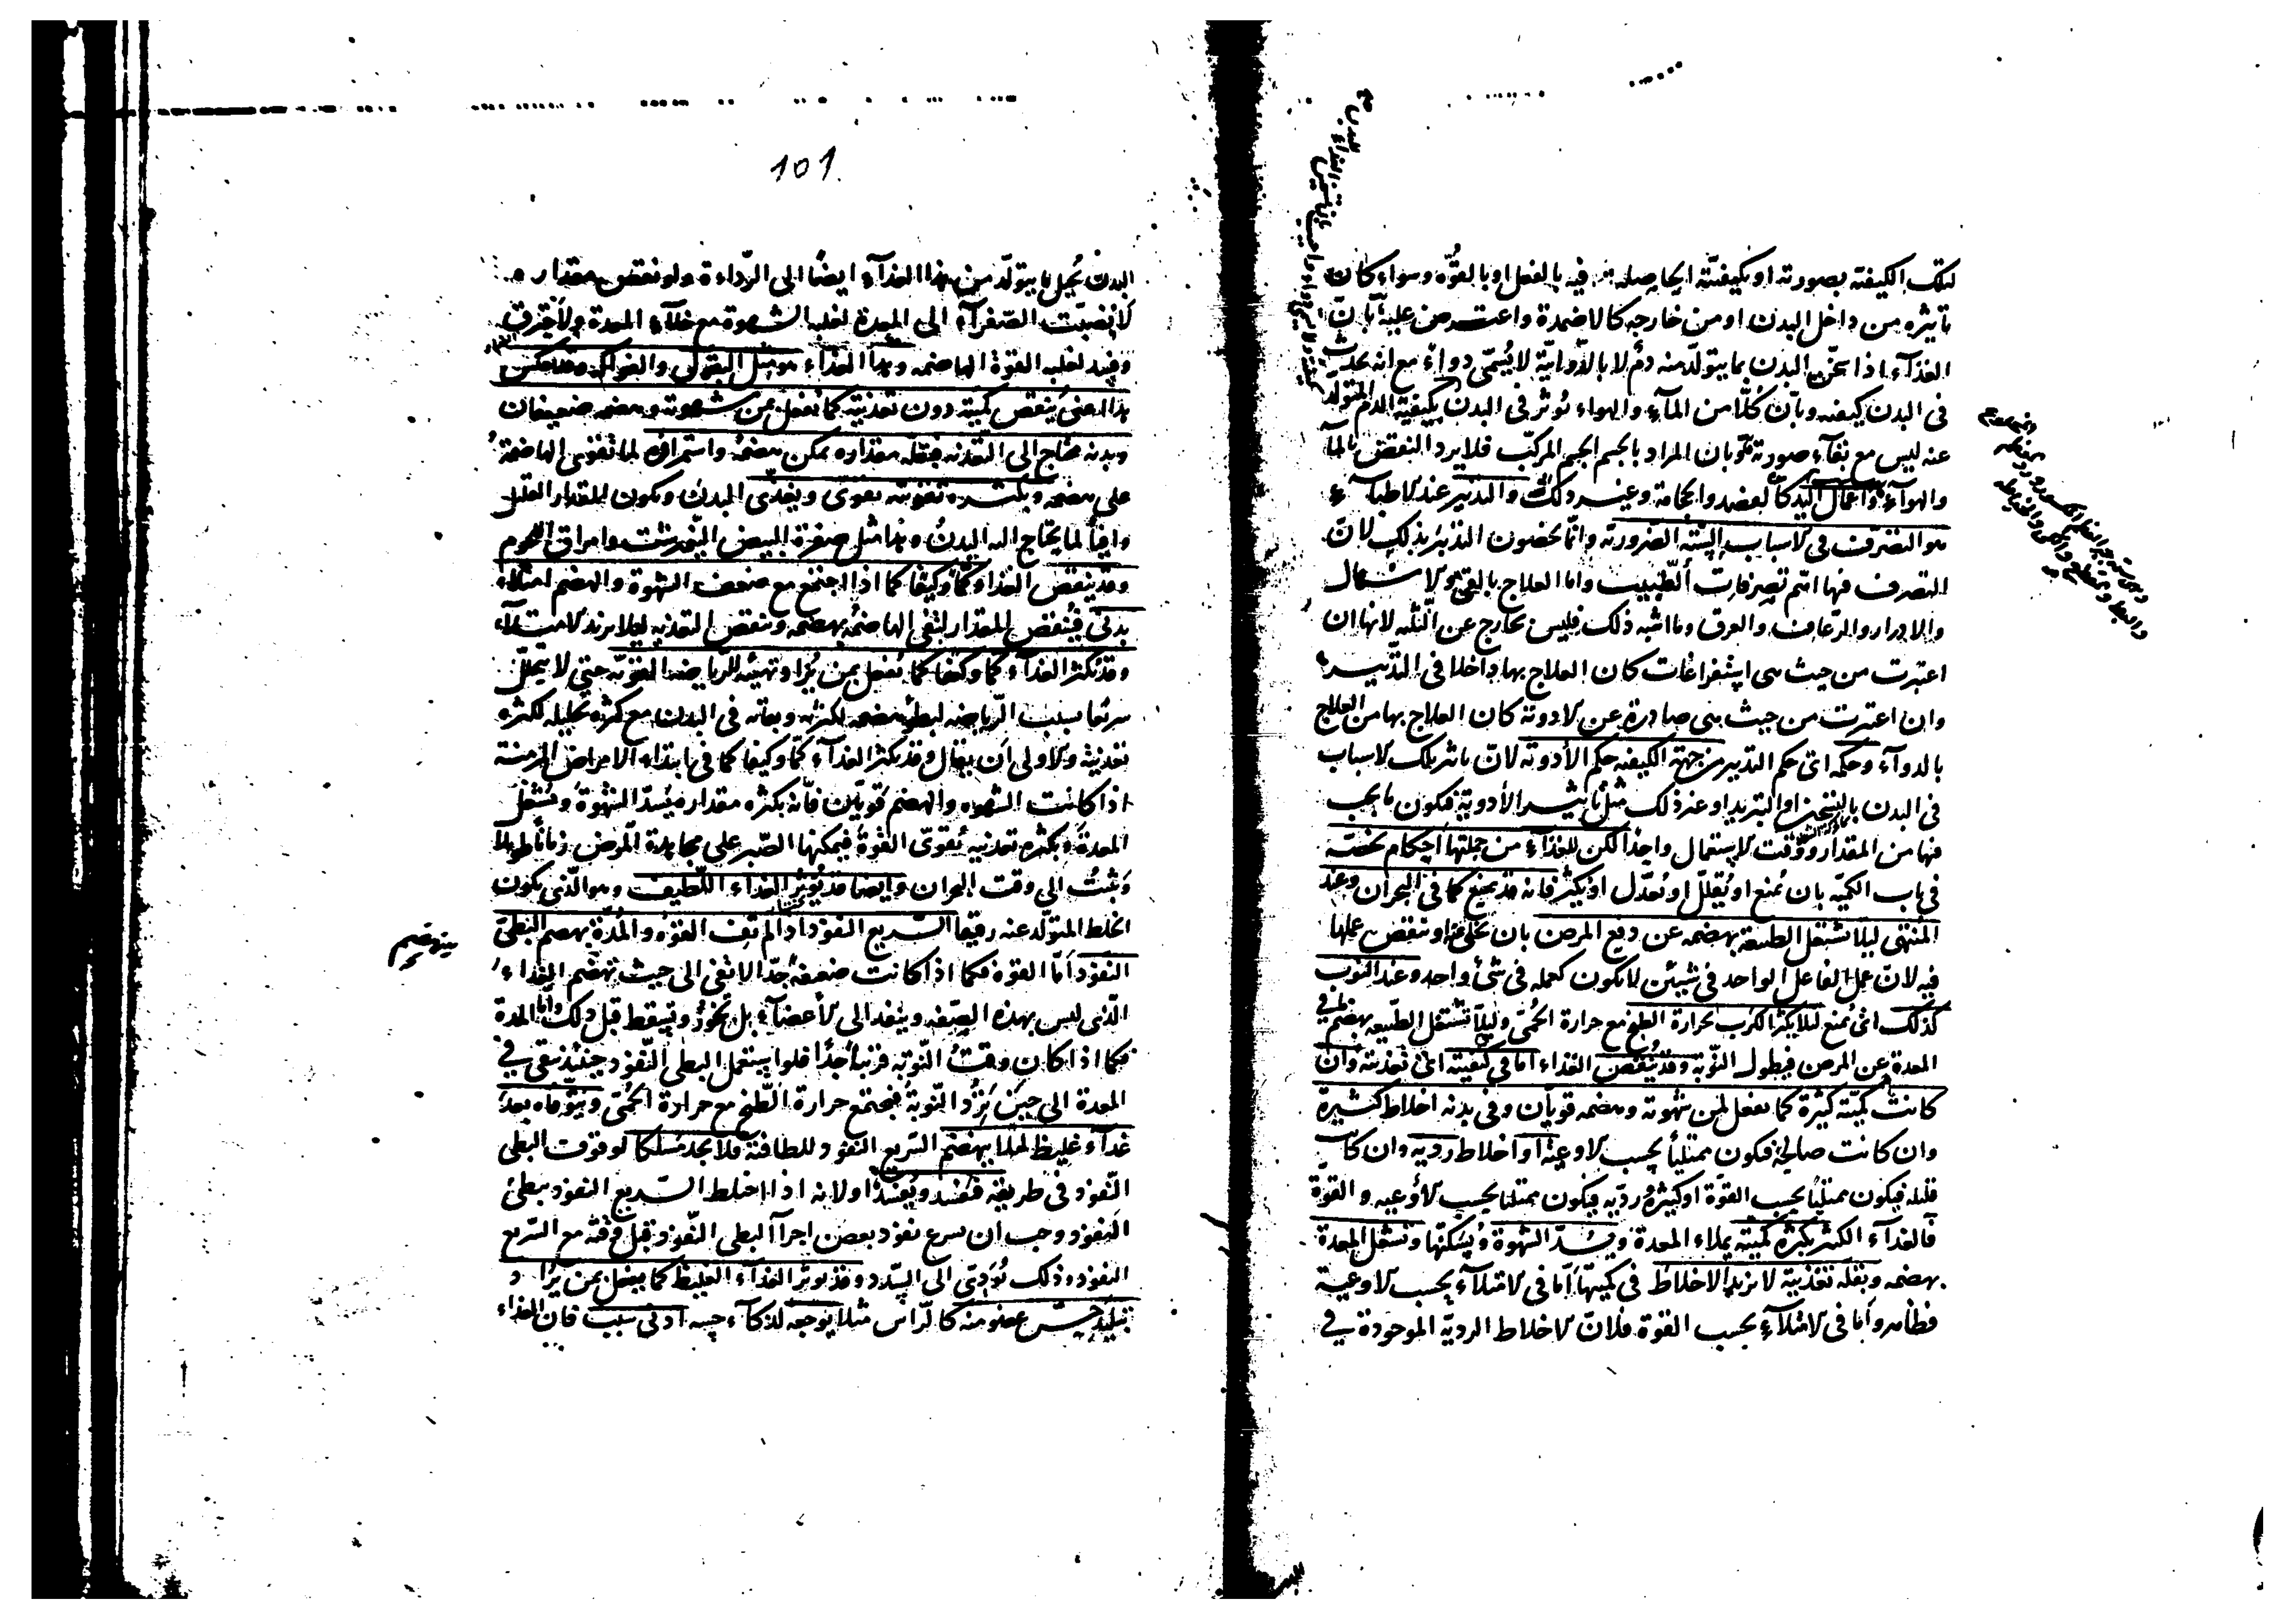 لتلك الكيفية بصورته او بكيفيته الحاصلة فيه بالفعل او بالقوة وسواء كان
تاثيره من داخل البدن او من خارجه كالاضمدة واعترض عليه بان
الغذاء اذا سخن البدن بما يتولد منه دم لا بالدوائية لا يسمى دواء مع انه يحدث
فى البدن كيفيه وبان كلا من الماء والهواء يؤثر فى البدن بكيفية الدم المتولد
عنه ليس مع بقاء صورته وبان المراد بالجسم الجسم المركب فلا يرد النقض بالماء
والهواء واعمال اليد كالفصد والحجامة وغير ذلك والتدبير عند الاطباء
هو التصرف فى الاسباب الستة الضرورية وانما يخصون التدبير بذلك لان
التصرف فيها اتم تصرفات الطبيب واما العلاج بالقئ والاسهال
والادرار والرعاف والعرق وما اشبه ذلك فليس بخارج عن الثلثة لانها ان
اعتبرت من حيث هى استفراغات كان العلاج بها داخلا فى التدبير
وان اعتبرت من حيث هى صادرة عن الادوية كان العلاج بها من العلاج
بالدواء وحكمه اى حكم التدبير من جهة الكيفية حكم الأدوية لان تاثير تلك الاسباب
فى البدن بالتسخين او التبريد او غير ذلك مثل تاثير الأدوية فيكون ما يجب
فيها من المقدار ووقت الاستعمال واحدا لكن للغذاء من جملتها احكام تخصه
فى باب الكمية بان يمنع او يقلل او يعدل او يكثر فانه قد يمنع كما فى البحران وعند
المنتهى ليلا تشتغل الطبيعة بهضمه عن دفع المرض بان تخلى عنه او تنقص عملها
فيه لان عمل الفاعل الواحد فى شيئين لا يكون كعمله فى شئ واحد وعند النوب
كذلك اى يمنع ليلا يكثر الكرب بحرارة الطبخ مع حرارة الحمى وليلا تشتغل الطبيعه بهضم ما فى
المعدة عن المرض فيطول النوبة وقد ينقص الغذاء اما فى كيفيته اى تغذيته وان
كانت كميته كثيرة كما يفعل لمن شهوته وهضمه قويان وفى بدنه اخلاط كثيرة
وان كانت صالحة فيكون ممتلئا بحسب الاوعية او اخلاط ردية وان كانت
قليلة فيكون ممتلئا بحسب القوة او كثيرة ردية فيكون ممتلئا بحسب الأوعيه والقوة
فالغذاء الكثير بكثرة كميته يملاء المعدة ويسد الشهوة ويسكنها وتشتغل المعدة
بهضمه وبقلة تغذيته لا يزيد الاخلاط فى كميتها اما فى الامتلاء بحسب الاوعية
فظاهر واما فى الامتلاء بحسب القوة فلان الاخلاط الردية الموجودة فى
101
البدن تحيل ما يتولد من هذا الغذاء ايضا الى الرداءة ولو نقص مقداره
لانصبت الصفراء الى المعدة لغلبة الشهوة مع خلاء المعدة ولاحترق
وفسد لغلبه القوة الهاضمه وهذا الغذاء هو مثل البقول والفواكه وقد يعكس
هذا المعنى ينقص كميته دون تغذيته كما يفعل بمن شهوته وهضمه ضعيفان
وبدنه محتاج الى التغذية فبقلة مقداره يمكن هضمه واستمراؤه لما تقوى الهاضمة
على هضمه وبكثرة تغذيته يقوى ويغذى البدن ويكون المقدار القليل
وافيا لما يحتاج اليه البدن وهذا مثل صفرة البيض النيمبرشت وامراق اللحوم
وقد ينقص الغذاء كما وكيفا كما اذا اجتمع مع ضعف الشهوة والهضم امتلاء
بدنى فينقص المقدار لتفى الهاضمه بهضمه وينقص التغذيه ليلا يزيد الامتلاء
وقد يكثر الغذاء كما وكيفا كما يفعل بمن يراد تهيئه للرياضة القوية حتى لا يتحلل
سريعا بسبب الرياضه لبطئ هضمه لكثرته وبقائه فى البدن مع كثرة تحليله لكثرة
تغذيته والاولى ان يقال وقد يكثر الغذاء كما وكيفا كما فى ابتداء الامراض المزمنة
اذا كانت الشهوه والهضم قويان فانه بكثرة مقداره يسد الشهوة ويشغل
المعدة وبكثرة تغذيته يقوى القوة فيمكنها الصبر على مجاهدة المرض زمانا طويلا
وتثبت الى وقت البحران وايضا قد يؤثر الغذاء اللطيف وهو الذى يكون
الخلط المتولد عنه رقيقا السريع النفوذ اذا لم تف القوة والمدة بهضم البطئ
النفوذ اما القوة فكما اذا كانت ضعيفة جدا لا تفى الى حيث ينهضم الغذاء
ينهضم
الذى ليس بهذه الصفه وينفذ الى الأعضاء بل تخور وتسقط قبل ذلك واما المدة
فكما اذا كان وقت النوبة قريبا جدا فلو استعمل البطى النفوذ حينئذ يبقى فى
المعدة الى حين يرد النوبة فيجتمع حرارة الطبخ مع حرارة الحمى ويتوقاه بعد
غذاء غليظ ليلا ينهضم السريع النفوذ للطافته فلا يجد مسلكا لوقوف البطى
النفوذ فى طريقه فيفسد ويفسده ولانه اذا اختلط السريع النفوذ ببطئ
النفوذ وجب ان يسرع نفوذ بعض اجزاء البطى النفوذ قبل وقته مع السريع
النفوذ وذلك يؤدى الى السدد وقد يؤثر الغذاء الغليظ كما يفعل بمن يراد
تبليد حس عضو منه كالراس مثلا يوجعه لذكاء حسه ادنى سبب فان الغذاء